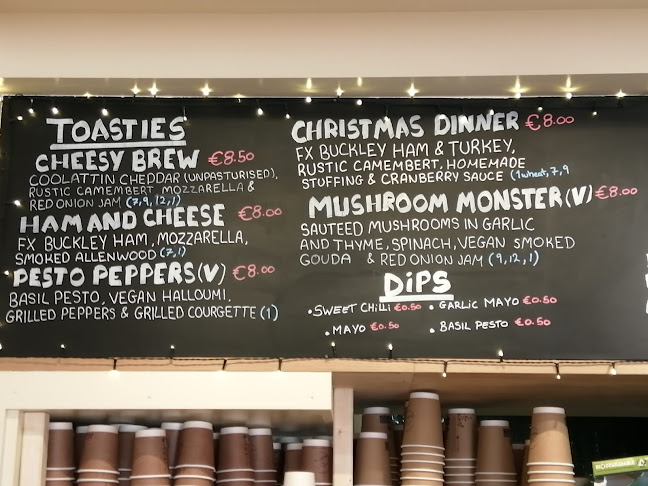 TOASTIES
CHEESY BREW €8.50
COOLATTIN CHEDDAR (UNPASTURISED),
RUSTIC CAMEMBERT, MOZZARELLA &
RED ONION JAM (7, 9, 12, 1)
HAM AND CHEESE €8.00
FX BUCKLEY HAM, MOZZARELLA,
SMOKED ALLENWOOD (7, 1)
PESTO PEPPERS (V) €8.00
BASIL PESTO, VEGAN HALLOUMI,
GRILLED PEPPERS & GRILLED COURGETTE (1)
CHRISTMAS DINNER €8.00
FX BUCKLEY HAM & TURKEY,
RUSTIC CAMEMBERT, HOMEMADE
STUFFING & CRANBERRY SAUCE (1 wheat, 7, 9
MUSHROOM MONSTER (V) €8.00
SAUTEED MUSHROOMS IN GARLIC
AND THYME, SPINACH, VEGAN SMOKED
GOUDA & RED ONION JAM (9, 12, 1)
DIPS
• SWEET CHILLI €0.50 • GARLIC MAYO €0.50
• MAYO €0.50 • BASIL PESTO €0.50